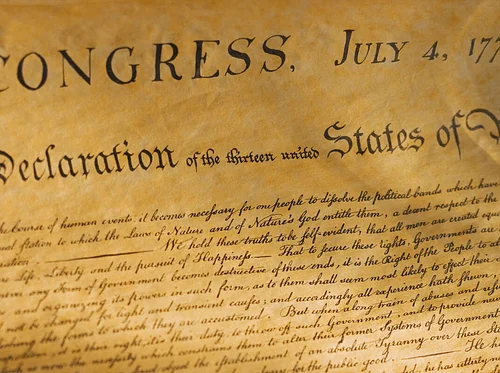 CONGRESS, JULY 4, 177
Declaration of the thirteen united States of
course of human events, it becomes necessary for one people to dissolve the political bands which have
station to which the Laws of Nature and of Nature's God entitle them, a decent respect to the
We hold these truths to be self-evident, that all men are created equal
Life, Liberty and the pursuit of Happiness — That to secure these rights, Governments are
any Form of Government becomes destructive of these ends, it is the Right of the People to
and organizing its powers in such form, as to them shall seem most likely to effect their
not be changed for light and transient causes; and accordingly all experience hath shewn,
the forms to which they are accustomed. But when a long train of abuses and
it is their right, it is their duty, to throw off such Government, and to provide new
is now the necessity which constrains them to alter their former Systems of Government
object the establishment of an absolute Tyranny over these
for the public good. He
he has utterly